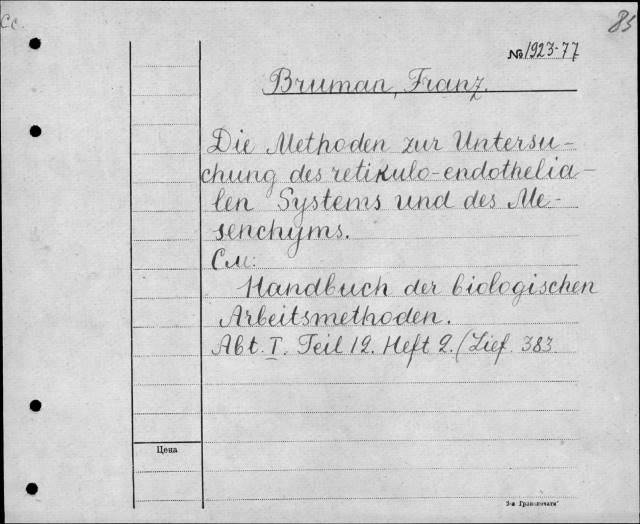 Сс.
85
№ 1923-77
Bruman, Franz.
Die Methoden zur Untersu-
chung des retikulo-endothelia-
len Systems und des Me-
senchyms.
См:
Handbuch der biologischen
Arbeitsmethoden.
Abt. I. Teil 12. Heft 2. (Lief. 383
Цена